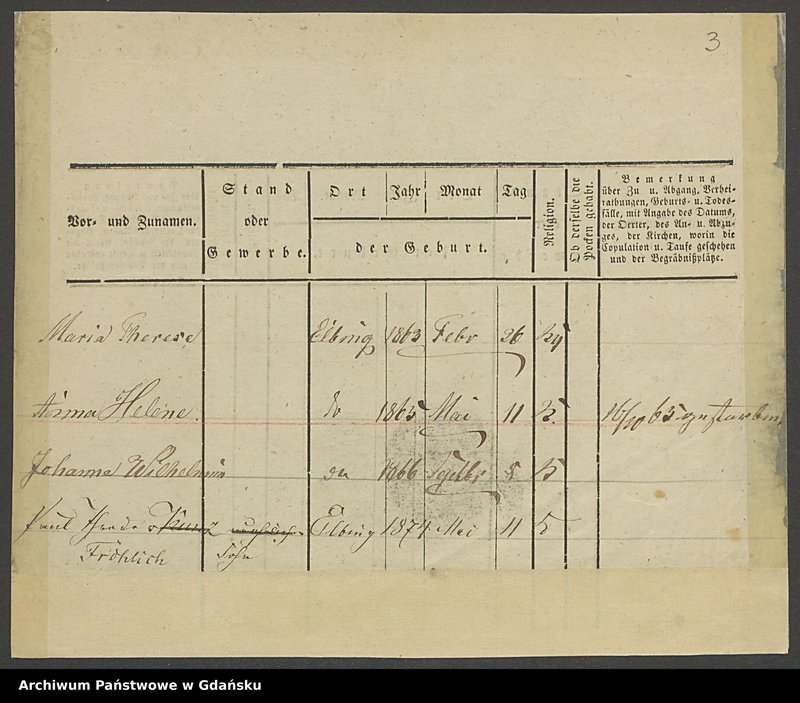 3
Vor- und Zunamen.
Stand
oder
Gewerbe.
Ort Jahr Monat Tag
der Geburt.
Religion.
Ob derselbe die
Pocken gehabt.
Bemerkung
über Zu u. Abgang, Verhei-
rathungen, Geburts- u. Todes-
fälle, mit Angabe des Datums,
der Oerter, des An- u. Abzu-
ges, der Kirchen, worin die
Copulation u. Taufe geschehen
und der Begräbnißplätze.
Maria Therese Elbing 1863 Febr 26
Anna Helene do 1865 Mai 11 16/10 65 gestorben
Johanna Wilhelmine do 1866 Septbr 8
Paul Elbing 1874 Mai 11
Fröhlich Sohn
Archiwum Państwowe w Gdańsku